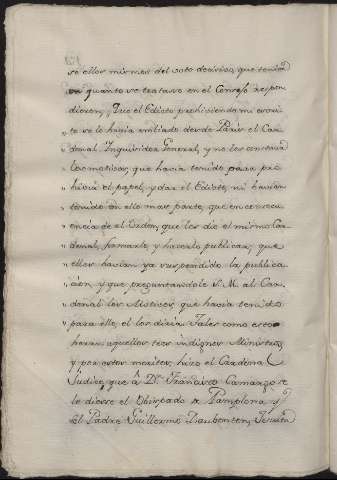 se ellos mismos del voto decisivo, que tenian
en quanto se tratava en el Consejo respon
dieron, Que el Edicto prohiviendo mi escri
to se lo havia embiado desde Paris el Car
denal Inquisidor General, y no les constava
los motivos, que havia tenido para pro
hivir el papel, y dar el Edicto, ni havian
tenido en ello mas parte, que en consequ
encia de el Orden, que les dio el mismo Car
denal, formarlo, y hacerlo publicar, que
ellos havian ya suspendido la publica
cion, y que preguntandole S. M. al Car
denal los Motivos, que havia tenido
para ello, el los diria. Tales como estos
heran aquellos tres indignos Ministros
y por estos meritos, hizo el Cardenal
Judice, que à Dn. Francisco Camargo se
le diesse el Obispado de Pamplona y
el Padre Guillermo Daubenton, Jesuita